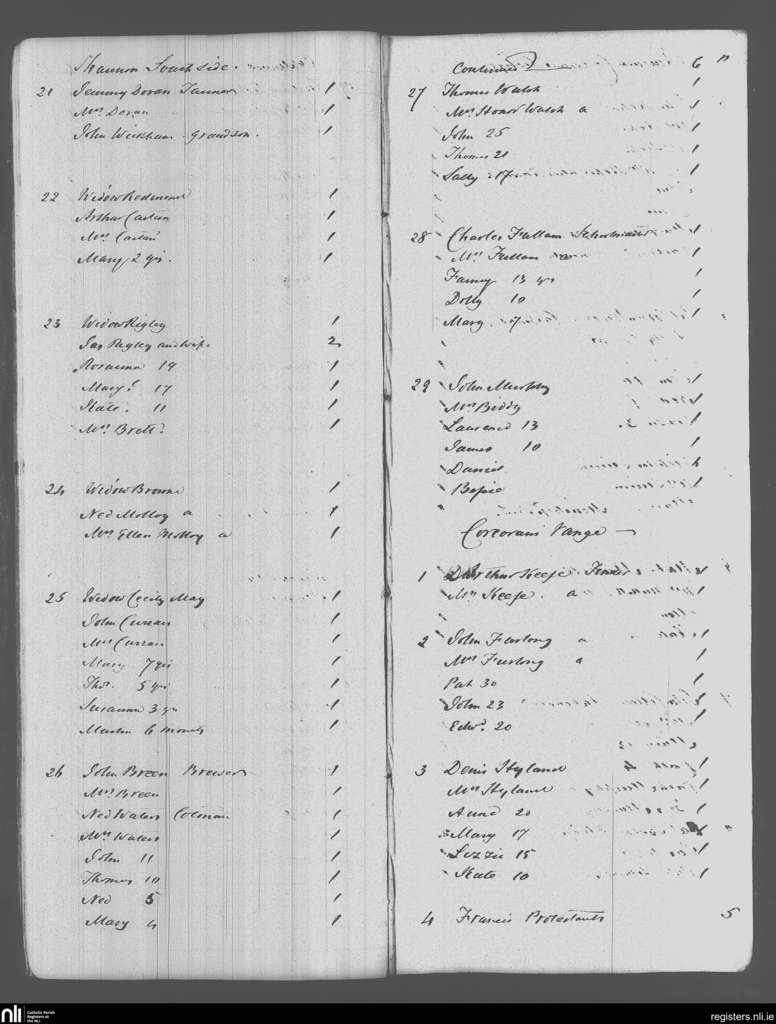 Shannon South side.
21 Jemmy Doran Tanner 1
Mrs Doran 1
John Wickham. grandson. 1
22 Widow Redmond 1
Arthur 1
Mrs 1
Mary 2 yrs. 1
23 Widow Rigley 1
Jas Rigley and wife 2
Rosanna 19 1
Mary 17 1
Kate. 11 1
Mrs Brett. 1
24 Widow Browne 1
Ned Molloy a 1
Mrs Ellen Molloy a 1
25 Widow Cecily May 1
John Curran 1
Mrs Curran 1
Mary 7 yrs 1
Thos. 5 yrs 1
Susanna 3 yrs 1
Martin 6 months 1
26 John Breen Brewer 1
Mrs Breen 1
Ned Waters 1
Mrs Waters 1
John 11 1
Thomas 10 1
Ned 5 1
Mary 4 1
Continued 6
27 Thomas Walsh 1
Mrs Honor Walsh a 1
John 25 1
Thomas 21 1
Sally 17 1
28 Charles Fullam Schoolmaster 1
Mrs Fullam 1
Fanny 13 yrs 1
Dolly 10 1
Mary. 7 1
29 John Murphy 1
Mrs Biddy 1
Laurence 13 1
James 10 1
Daniel 1
Bessie 1
Corcorans Range
1 Arthur Keefe 1
Mrs Keefe. a 1
2 John Furlong a 1
Mrs Furlong a 1
Pat 30 1
John 23 1
Edwd. 20 1
3 Denis Hyland 1
Mrs Hyland 1
20 1
Mary 17 1
Lizzie 15 1
Kate 10 1
4 Francis Protestants 5
nli Catholic Parish
Registers at
the NLI
registers.nli.ie